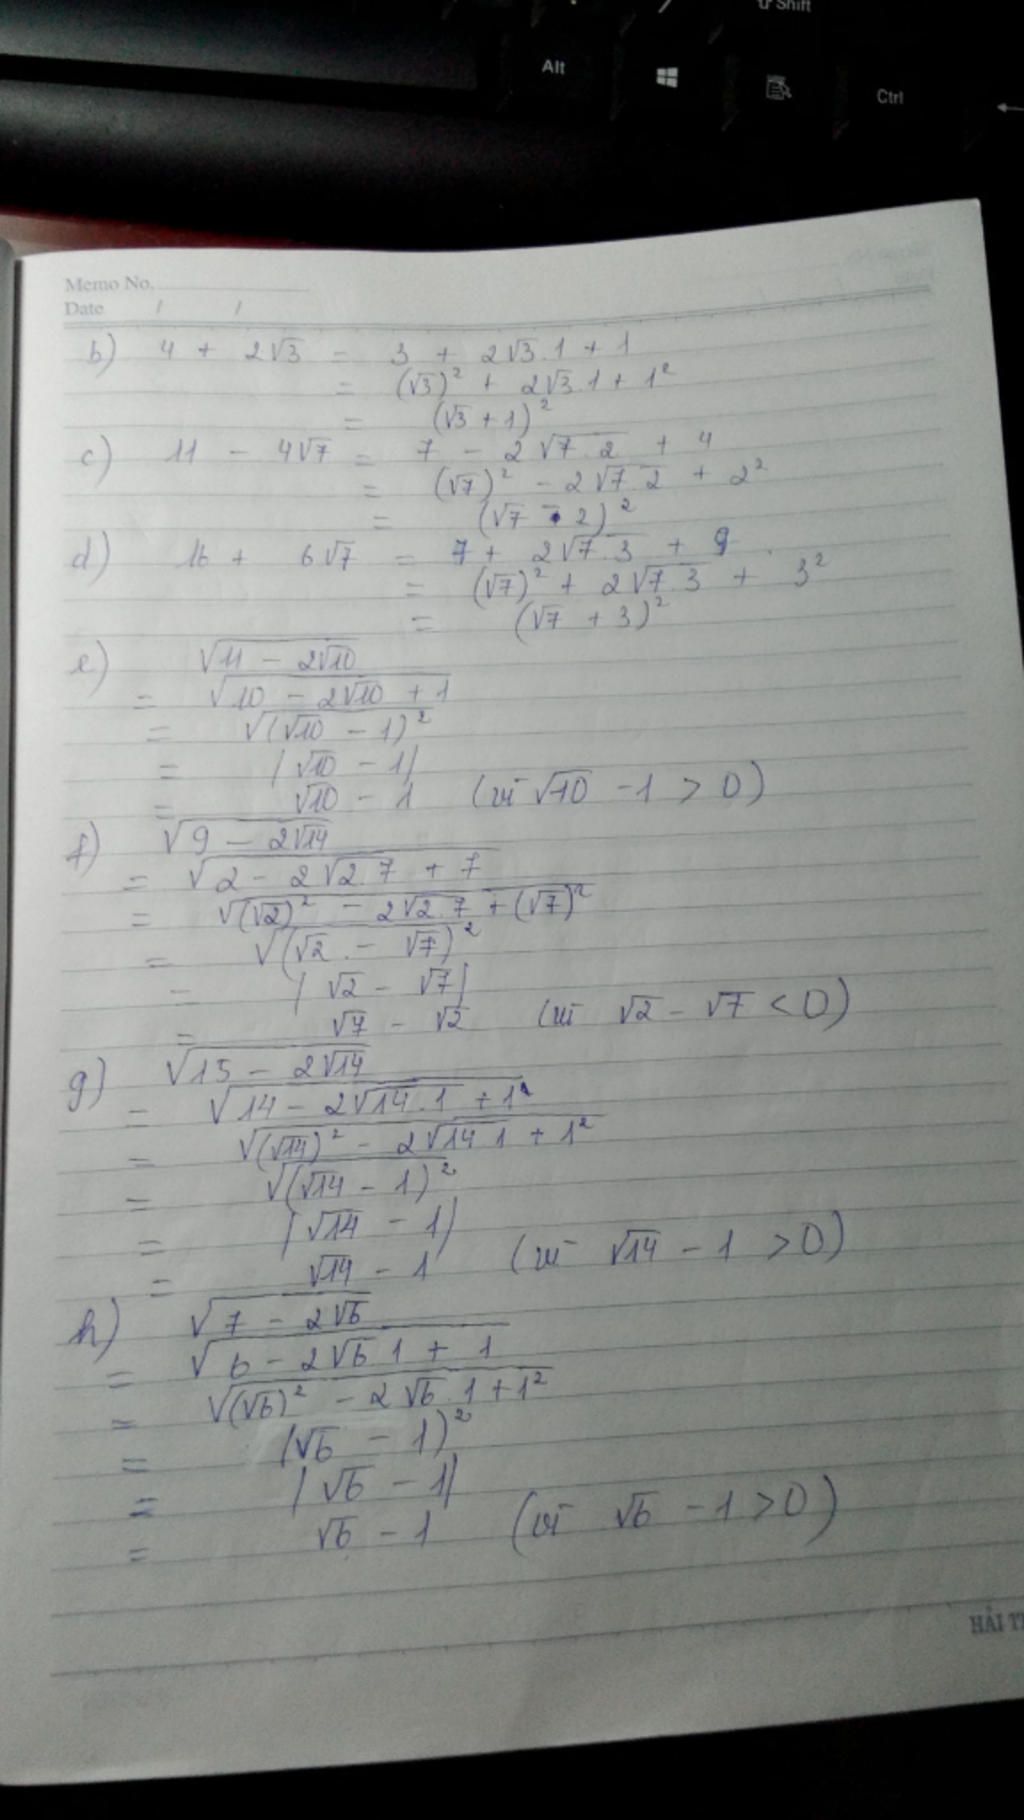 Shift
Alt
Ctrl
Memo No.
Date / /
b) 4 + 2√3 = 3 + 2√3.1 + 1
= (√3)² + 2√3.1 + 1²
= (√3 + 1)²
c) 11 - 4√7 = 7 - 2√7.2 + 4
= (√7)² - 2√7.2 + 2²
= (√7 - 2)²
d) 16 + 6√7 = 7 + 2√7.3 + 9
= (√7)² + 2√7.3 + 3²
= (√7 + 3)²
e) √(11 - 2√10)
= √(10 - 2√10 + 1)
= √(√10 - 1)²
= |√10 - 1|
= √10 - 1 (vì √10 - 1 > 0)
f) √(9 - 2√14)
= √(2 - 2√2.7 + 7)
= √((√2)² - 2√2.7 + (√7)²)
= √(√2 - √7)²
= |√2 - √7|
= √7 - √2 (vì √2 - √7 < 0)
g) √(15 - 2√14)
= √(14 - 2√14.1 + 1²)
= √((√14)² - 2√14.1 + 1²)
= √(√14 - 1)²
= |√14 - 1|
= √14 - 1 (vì √14 - 1 > 0)
h) √(7 - 2√6)
= √(6 - 2√6.1 + 1)
= √((√6)² - 2√6.1 + 1²)
= (√6 - 1)²
= |√6 - 1|
= √6 - 1 (vì √6 - 1 > 0)
HẢI